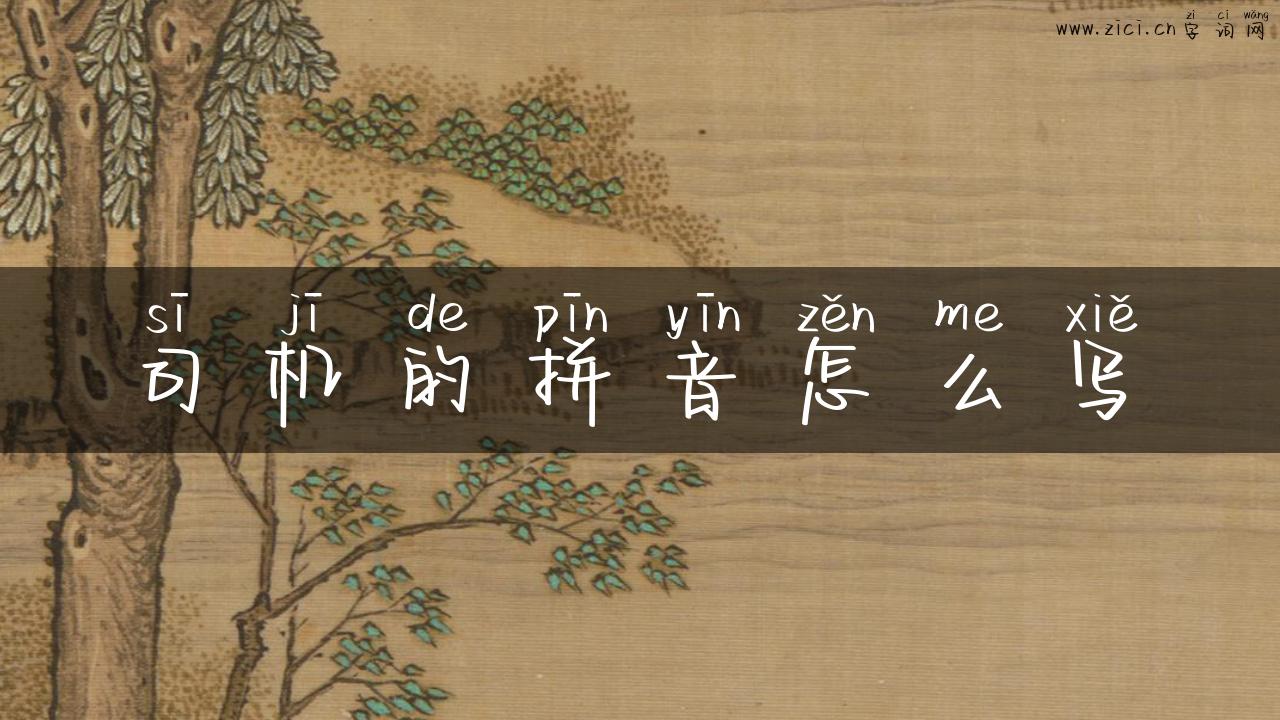 zì cí wǎng
www.zici.cn 字词网
sī jī de pīn yīn zěn me xiě
司机的拼音怎么写